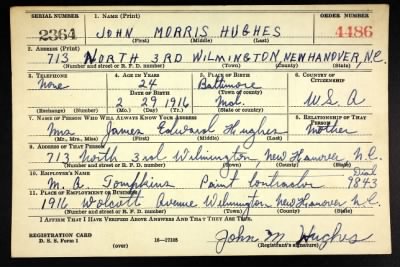 SERIAL NUMBER 1. NAME (Print) ORDER NUMBER
2364 JOHN MORRIS HUGHES 4486
(First) (Middle) (Last)
2. ADDRESS (Print)
713 NORTH 3RD WILMINGTON, NEW HANOVER, N.C.
(Number and street or R. F. D. number) (Town) (County) (State)
3. TELEPHONE 4. AGE IN YEARS 5. PLACE OF BIRTH 6. COUNTRY OF CITIZENSHIP
None 24 Baltimore
DATE OF BIRTH (Town or county)
2 29 1916 Md. U.S.A
(Exchange) (Number) (Mo.) (Day) (Yr.) (State or country)
7. NAME OF PERSON WHO WILL ALWAYS KNOW YOUR ADDRESS 8. RELATIONSHIP OF THAT PERSON
Mrs. James Edward Hughes Mother
(Mr., Mrs., Miss) (First) (Middle) (Last)
9. ADDRESS OF THAT PERSON
713 North 3rd Wilmington, New Hanover N.C.
(Number and street or R. F. D. number) (Town) (County) (State)
10. EMPLOYER'S NAME Dial
M. A. Tompkins Paint Contractor 9843
11. PLACE OF EMPLOYMENT OR BUSINESS
1916 Wolcott Avenue Wilmington New Hanover N.C.
(Number and street or R. F. D. number) (Town) (County) (State)
I AFFIRM THAT I HAVE VERIFIED ABOVE ANSWERS AND THAT THEY ARE TRUE.
REGISTRATION CARD
D. S. S. Form 1 (over) 16—17105 John M Hughes
(Registrant's signature)